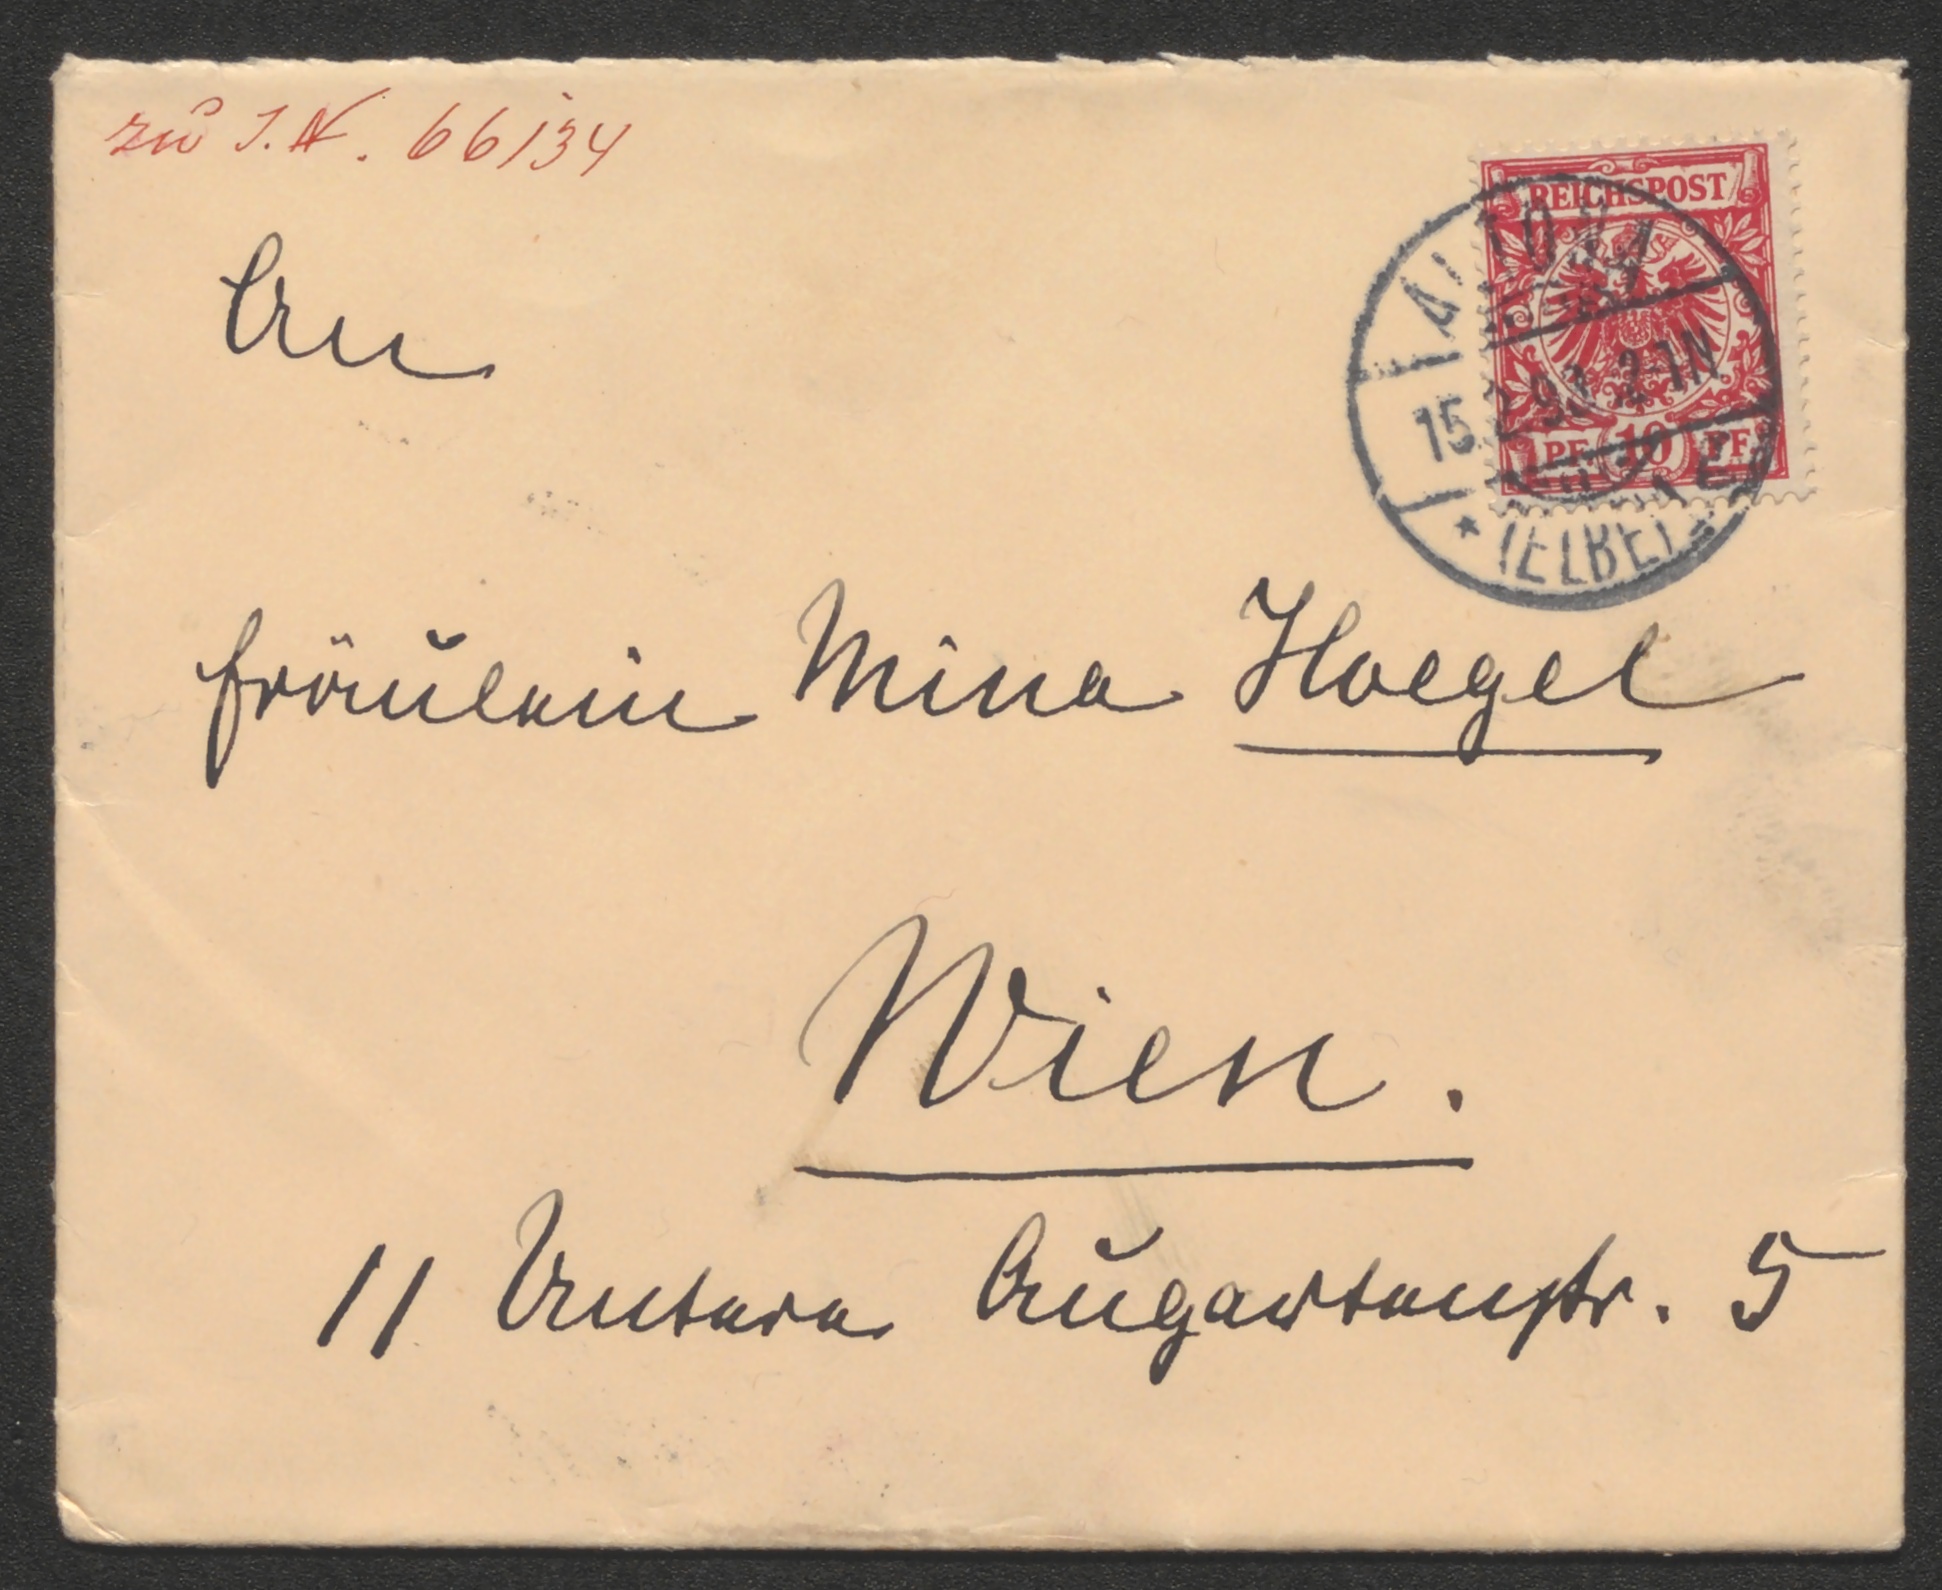 zu I.N. 66134
REICHSPOST
ALTONA
15.2.93. 2-1N
PF 10 PF
* (ELBE)
An
Fräulein Mina Hoegel
Wien.
II Untere Augartenstr. 5